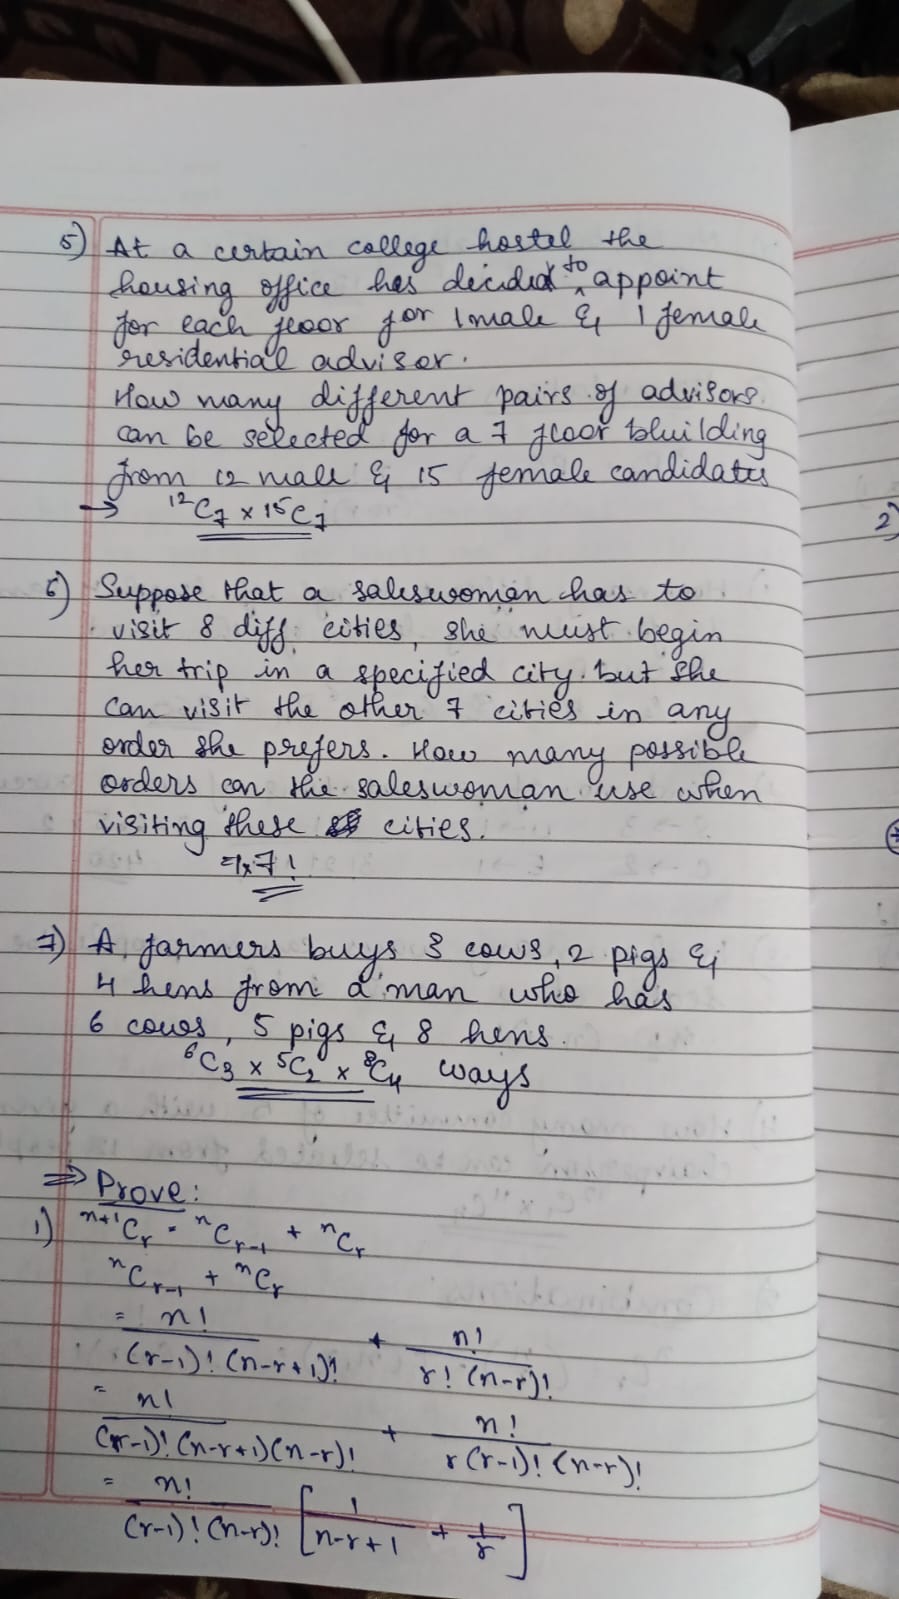 5) At a certain college hostel the
housing office has decided to appoint
for each floor for 1 male & 1 female
residential advisor.
How many different pairs of advisors
can be selected for a 7 floor bluilding
from 12 male & 15 female candidates
→ ¹²C₇ × ¹⁵C₇
2)
6) Suppose that a saleswoman has to
visit 8 diff. cities, she must begin
her trip in a specified city but she
can visit the other 7 cities in any
order she prefers. How many possible
orders can the saleswoman use when
visiting these cities.
7!
7) A farmers buys 3 cows, 2 pigs &
4 hens from a man who has
6 cows, 5 pigs & 8 hens.
⁶C₃ × ⁵C₂ × ⁸C₄ ways
⇒ Prove:
1) ⁿ⁺¹Cᵣ = ⁿCᵣ₋₁ + ⁿCᵣ
ⁿCᵣ₋₁ + ⁿCᵣ
= n! / (r-1)! (n-r+1)! + n! / r! (n-r)!
= n! / (r-1)! (n-r+1)(n-r)! + n! / r(r-1)! (n-r)!
= n! / (r-1)! (n-r)! [1 / n-r+1 + 1/r]